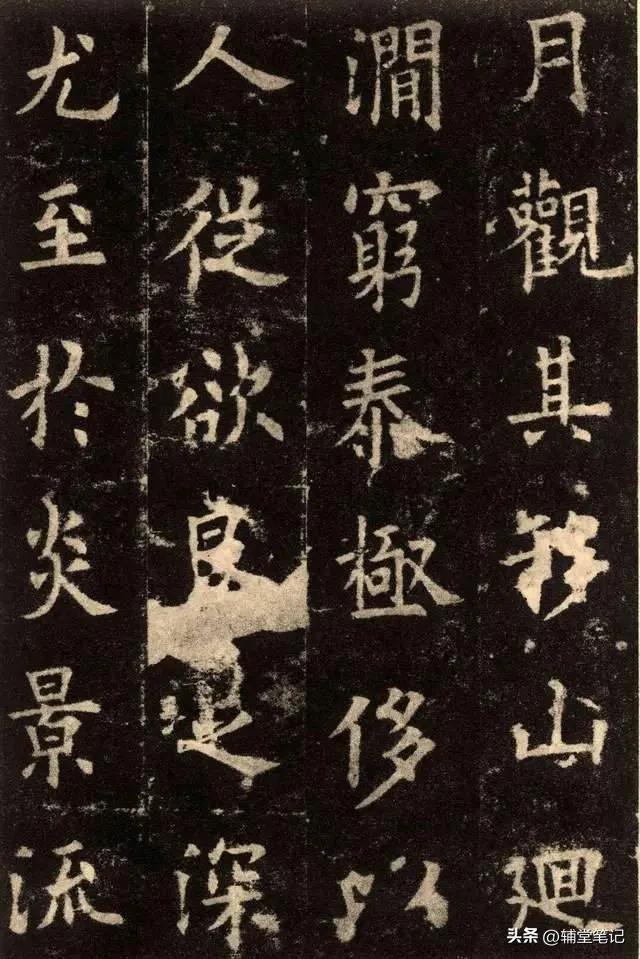 月觀其移山廻
澗窮泰極侈以
人從欲良足深
尤至於炎景流
头条 @辅堂笔记